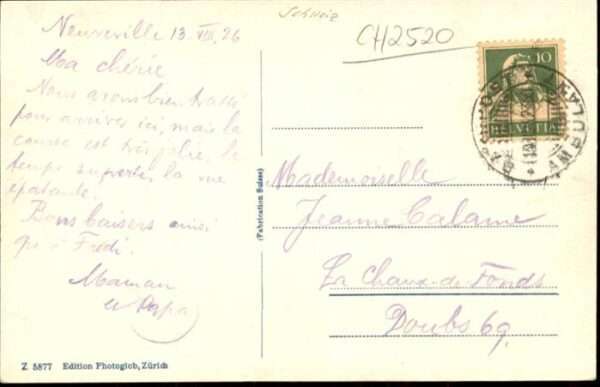 Neuveville 13 VIII, 26
Ma chérie
Nous avons bien trotté
pour arriver ici, mais la
course est très jolie, le
temps superbe, la vue
épatante.
Bons baisers ainsi
qu'à Frédi.
Maman
et Papa
Z 5877 Edition Photoglob, Zürich
(Fabrication Suisse)
Schweiz
CH2520
10
HELVETIA
BAHNPOST
AMBULANT
Mademoiselle
Jeanne Calame
La Chaux-de-Fonds
Doubs 69.